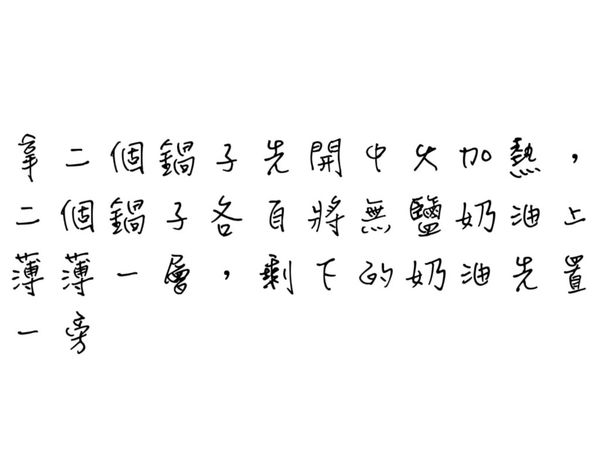 二個鍋子先開中火加熱，
二個鍋子各自將無鹽奶油上
薄薄一層，剩下的奶油先置
一旁